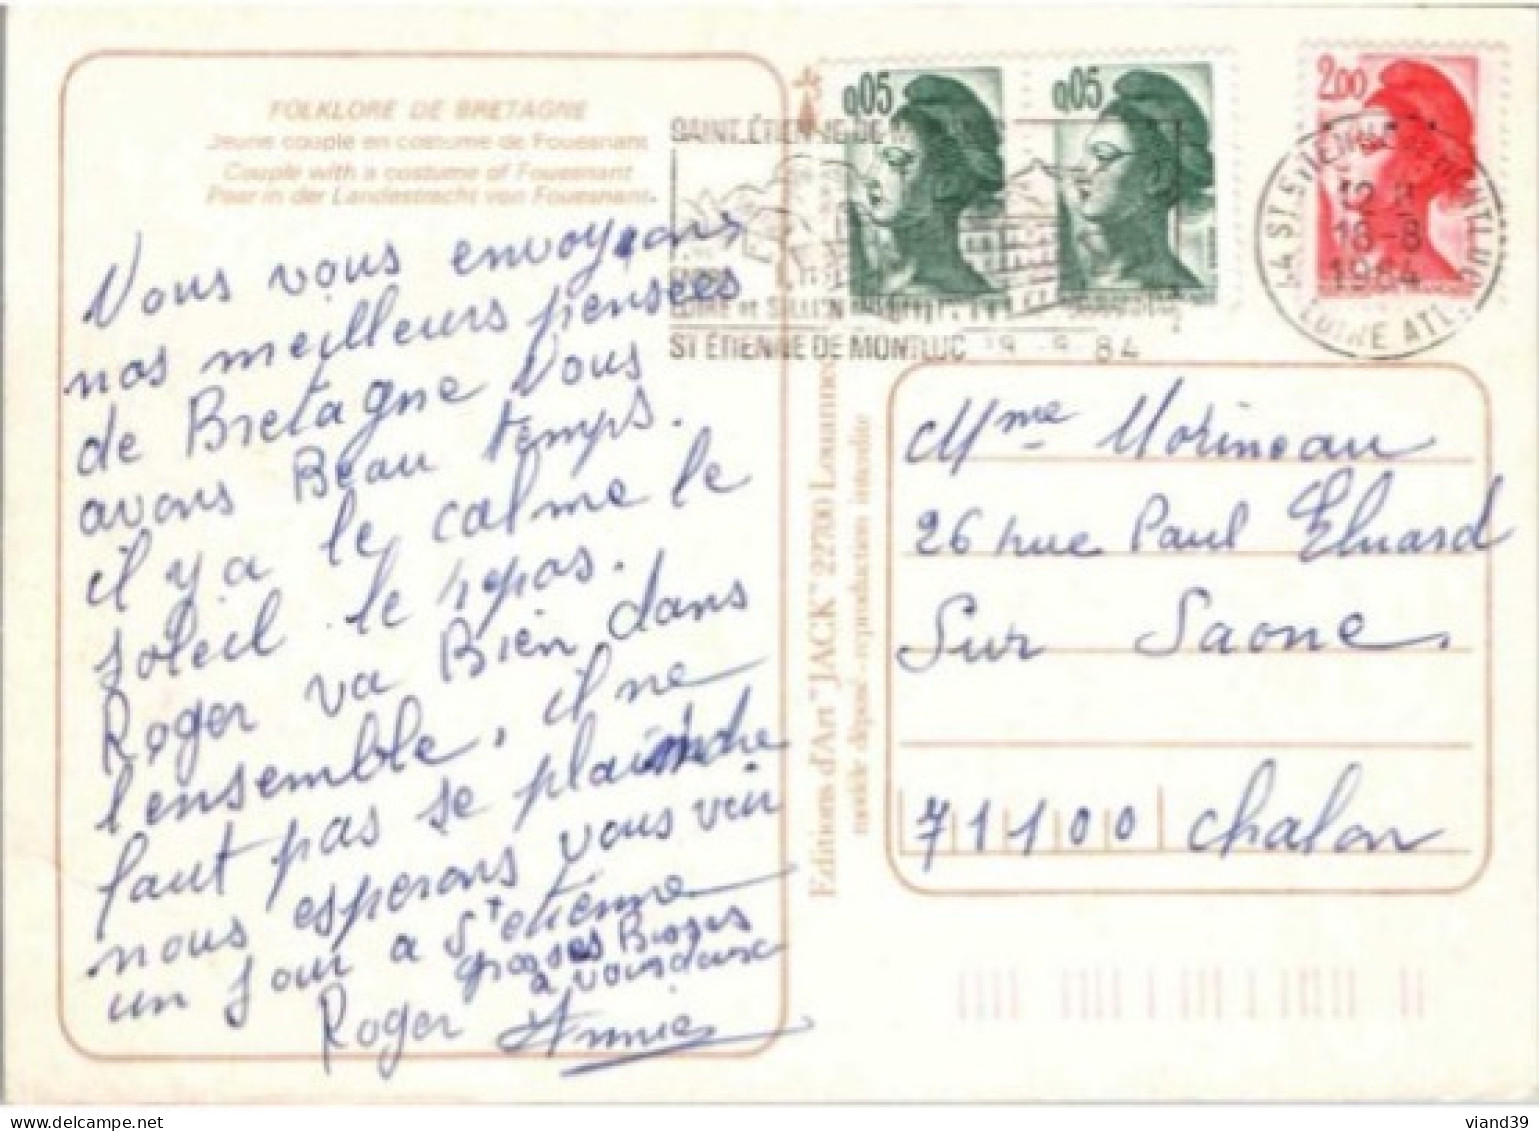 FOLKLORE DE BRETAGNE
Jeune couple en costume de Fouesnant
Couple with a costume of Fouesnant
Paar in der Landestracht von Fouesnant
Nous vous envoyons
nos meilleurs pensées
de Bretagne Nous
avons Beau temps.
il y a le calme le
soleil le repos.
Roger va Bien dans
l'ensemble, il ne
faut pas se plaindre
nous esperons vous voir
un jour a St etienne
grosses Bisous
a vous deux
Roger Annie
0,05
0,05
2,00
SAINT-ÉTIENNE DE
ENTRE
LOIRE et SILLON
ST ÉTIENNE DE MONTLUC 19 8 84
44 ST ETIENNE DE MONTLUC
12 H
18-8
1984
LOIRE ATL.
Editions d'Art "JACK" 22700 Louannec
modèle déposé - reproduction interdite
Mme Morineau
26 rue Paul Eluard
Sur Saone.
71100 Chalon
viand39